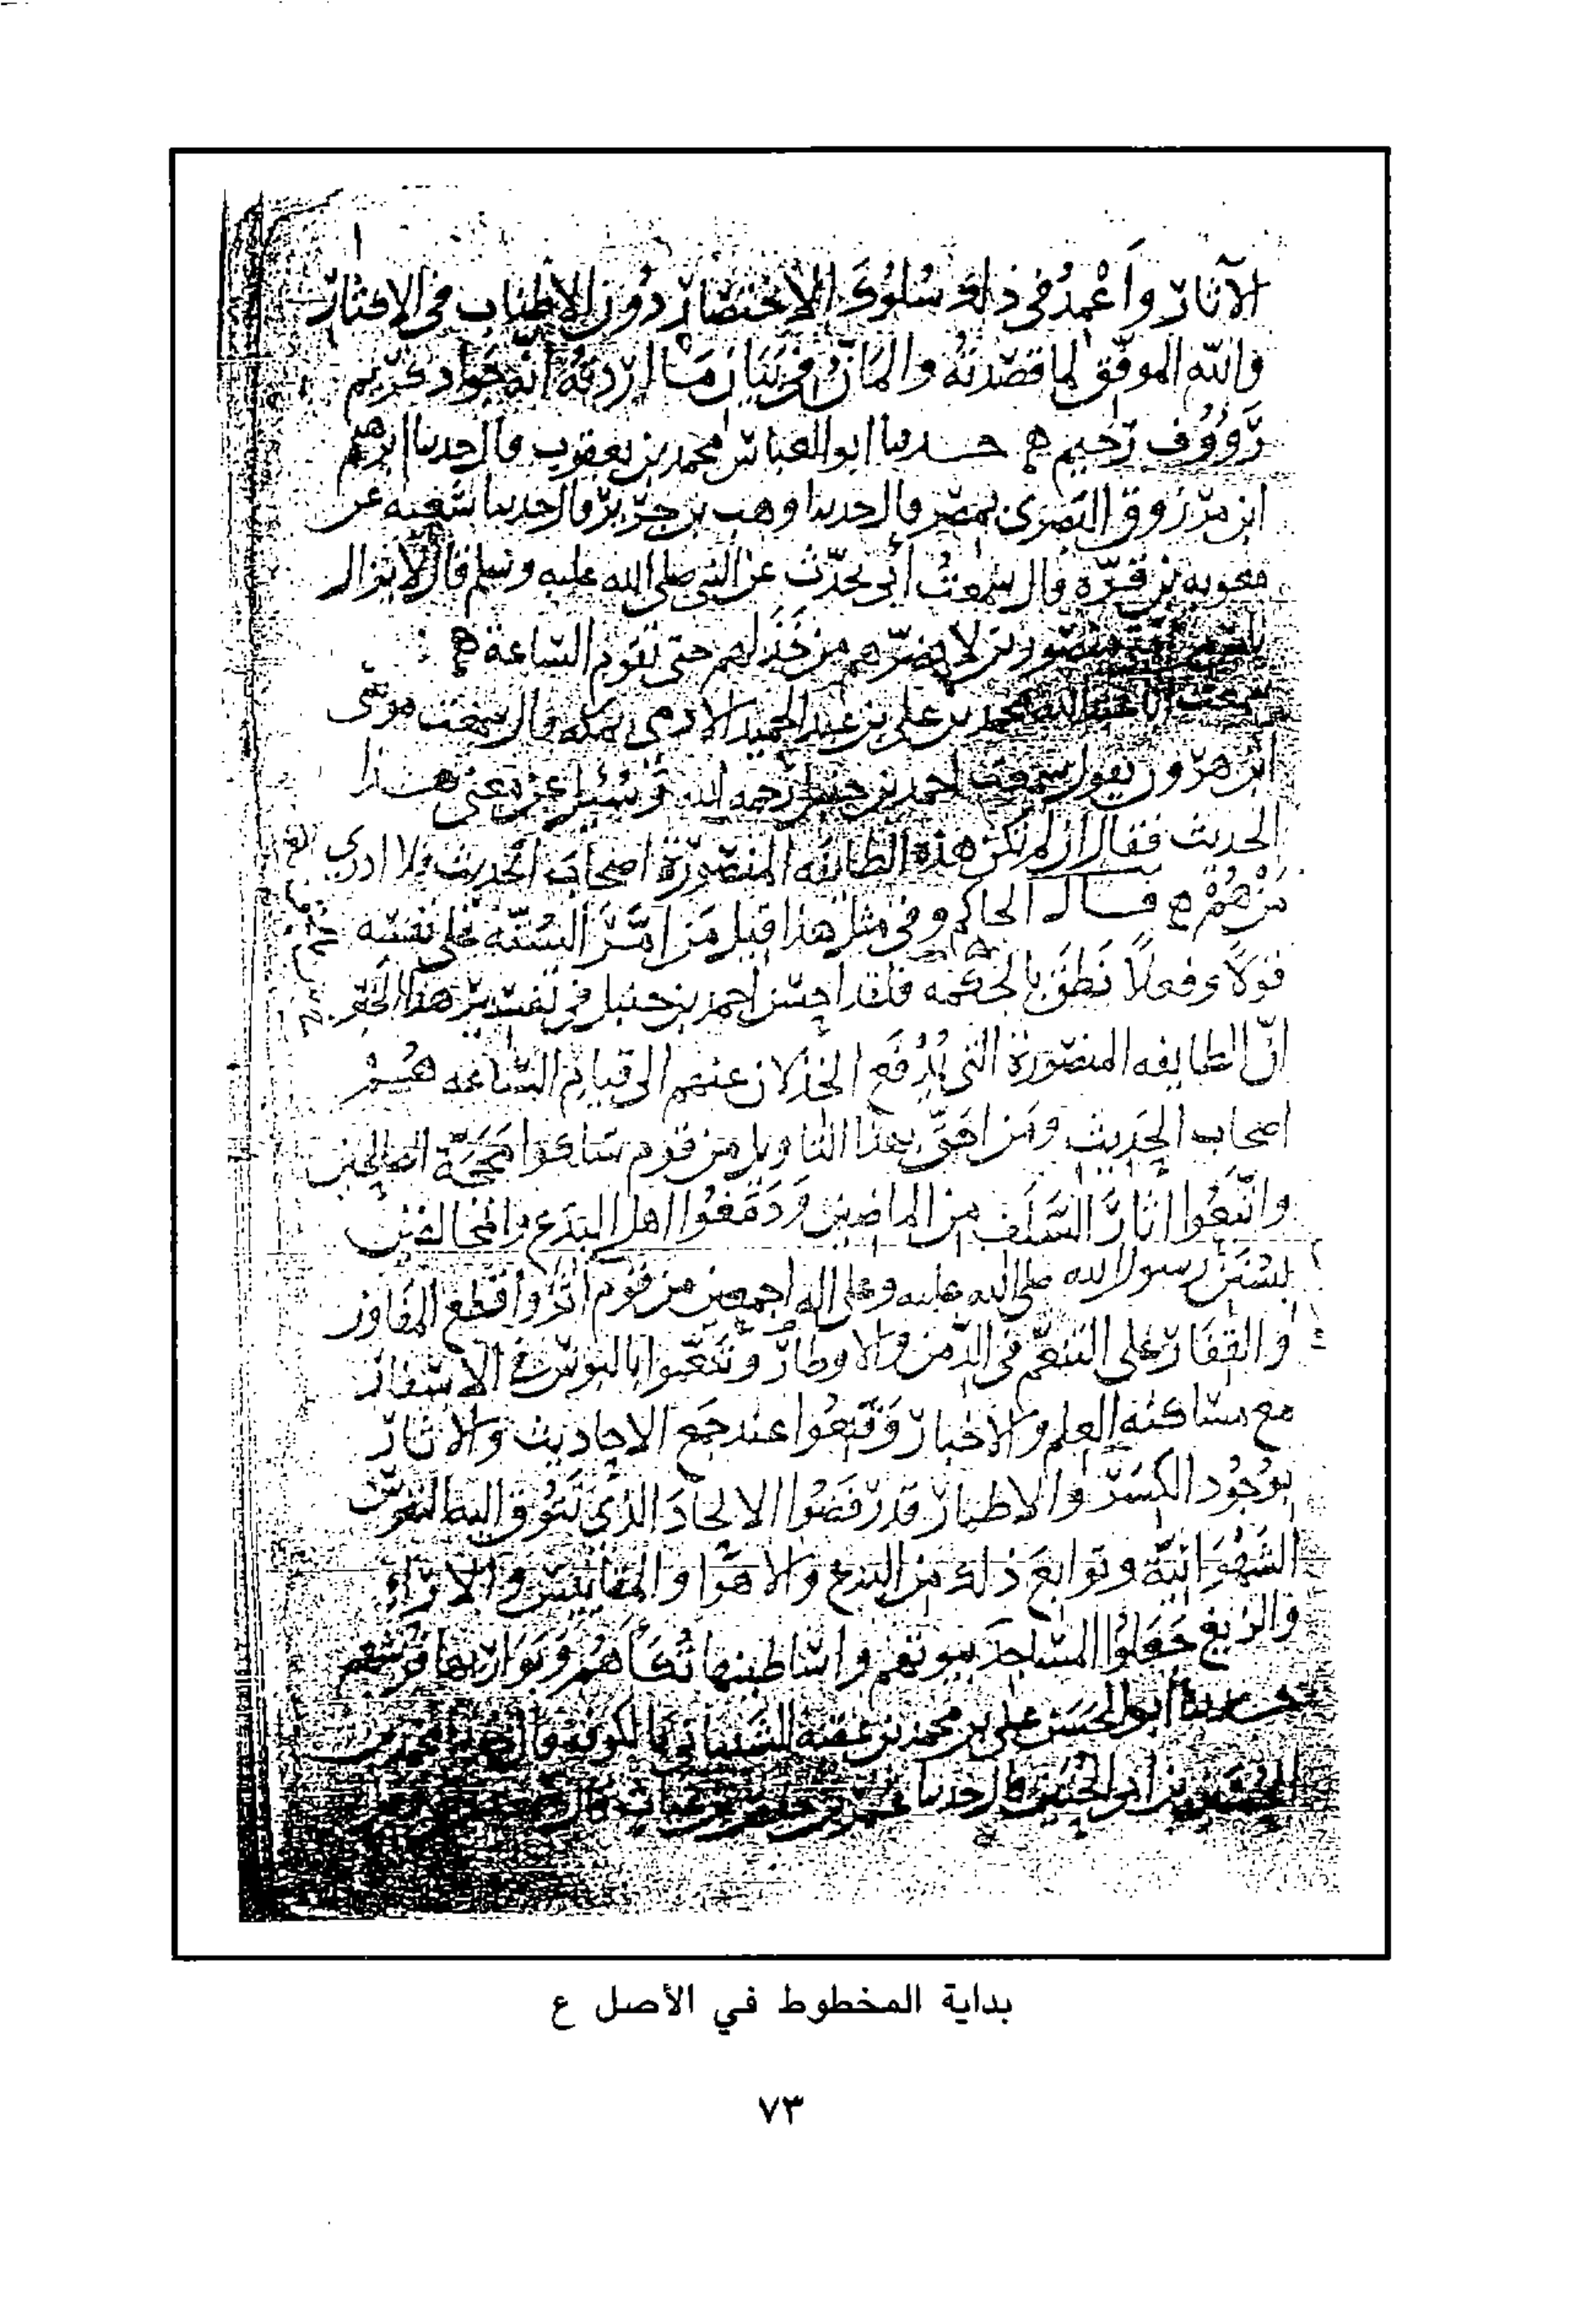 الآثار وأعمد في ذلك سلوك الاختصار دون الاطناب في الاكثار
والله الموفق لما قصدته والمان في بيان ما اردته انه جواد كريم
رؤوف رحيم ه حدثنا ابو العباس محمد بن يعقوب قال حدثنا ابرهيم
ابن مرزوق البصري بمصر قال حدثنا وهب بن جرير قال حدثنا شعبه عن
معويه بن قره قال سمعت أبي يحدث عن النبي صلى الله عليه وسلم قال لا يزال
منصورين لا يضرهم من خذلهم حتى تقوم الساعة ه
سمعت ابا عبد الله محمد بن علي بن عبد الحميد الادمي بمكه قال سمعت موسى
ابن هرون يقول سمعت احمد بن حنبل رحمه الله وسئل عن معنى هذا
الحديث فقال ان لم تكن هذه الطائفه المنصورة اصحاب الحديث فلا ادري
من هم ه قال الحاكم وفي مثل هذا قيل من امر السنة على نفسه
قولا وفعلا نطق بالحكمه فلقد احسن احمد بن حنبل في تفسير هذا الخبر
ان الطايفه المنصورة التي يدفع الخذلان عنهم الى قيام الساعه هم
اصحاب الحديث ومن احق بهذا التاويل من قوم سلكوا محجة الصالحين
واتبعوا اثار السلف من الماضين ودمغوا اهل البدع والمخالفين
بسنن رسول الله صلى الله عليه وعلى اله اجمعين من قوم اثروا قطع المفاوز
والقفار على التنعم في الدمن والاوطار وتنعموا بالبوس في الاسفار
مع مساكنة العلم والاخبار وقنعوا عند جمع الاحاديث والاثار
بوجود الكسر والاطمار قد رفضوا الالحاد الذي تتوق اليه النفوس
الشهوانية وتوابع ذلك من البدع والاهوا والمقاييس والآراء
والزيغ جعلوا المساجد بيوتهم واساطينها تكاهم وبواريها فرشهم
حدثنا أبو الحسن علي بن محمد بن عقبه الشيباني بالكوفه قال حدثنا محمد بن
الحسين بن ابي الحنين قال حدثنا عمر بن حفص بن غياث قال
بداية المخطوط في الأصل ع
٧٣